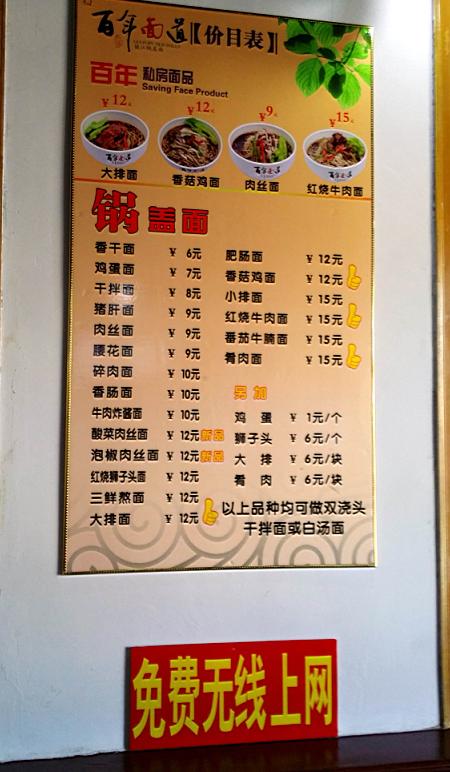 百年面道【价目表】
镇江锅盖面
百年 私房面品
Saving Face Product
¥12元 ¥12元 ¥9元 ¥15元
大排面 香菇鸡面 肉丝面 红烧牛肉面
锅盖面
香干面 ¥ 6元
鸡蛋面 ¥ 7元
干拌面 ¥ 8元
猪肝面 ¥ 9元
肉丝面 ¥ 9元
腰花面 ¥ 9元
碎肉面 ¥ 10元
香肠面 ¥ 10元
牛肉炸酱面 ¥ 10元
酸菜肉丝面 ¥ 12元 新品
泡椒肉丝面 ¥ 12元 新品
红烧狮子头面 ¥ 12元
三鲜熬面 ¥ 12元
大排面 ¥ 12元
肥肠面 ¥ 12元
香菇鸡面 ¥ 12元
小排面 ¥ 15元
红烧牛肉面 ¥ 15元
番茄牛腩面 ¥ 15元
肴肉面 ¥ 15元
另加
鸡蛋 ¥ 1元/个
狮子头 ¥ 6元/个
大排 ¥ 6元/块
肴肉 ¥ 6元/块
以上品种均可做双浇头
干拌面或白汤面
免费无线上网